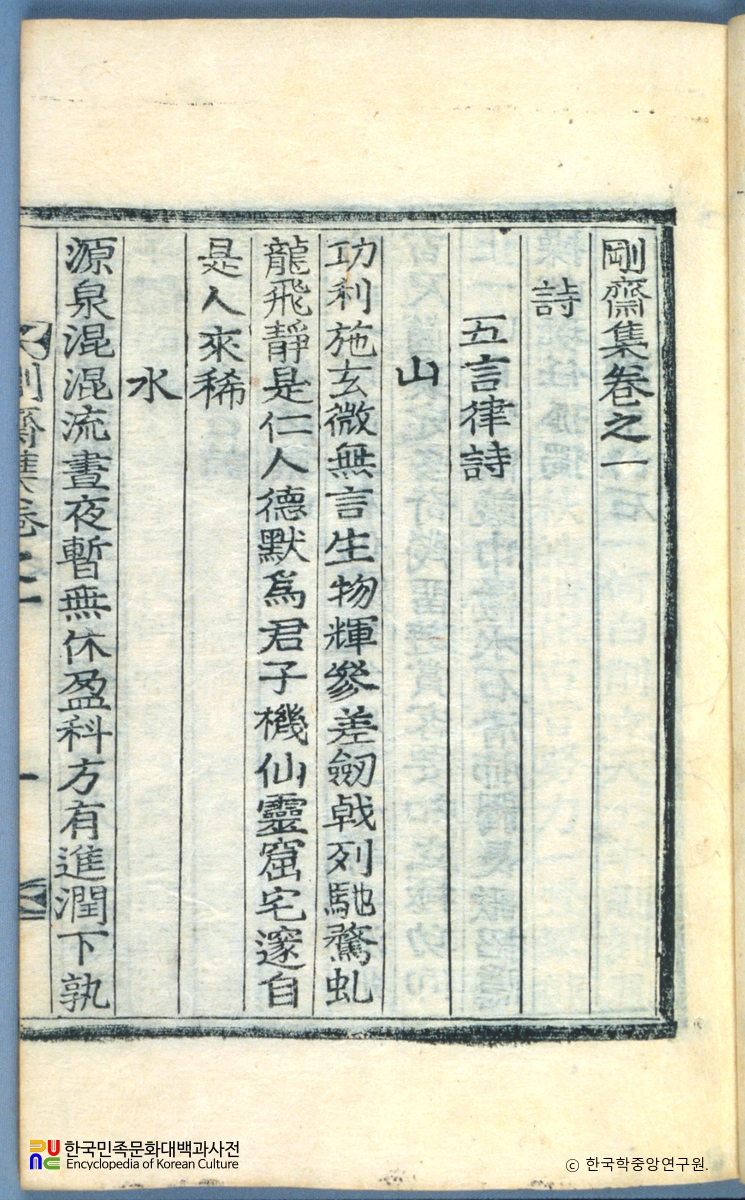 剛齋集卷之一
詩
五言律詩
山
功利施玄微無言生物輝參差劒戟列馳騖虬
龍飛靜是仁人德默爲君子機仙靈窟宅邃自
是人來稀
水
源泉混混流晝夜暫無休盈科方有進潤下孰
剛齋集卷之一
一
한국민족문화대백과사전
Encyclopedia of Korean Culture
© 한국학중앙연구원.